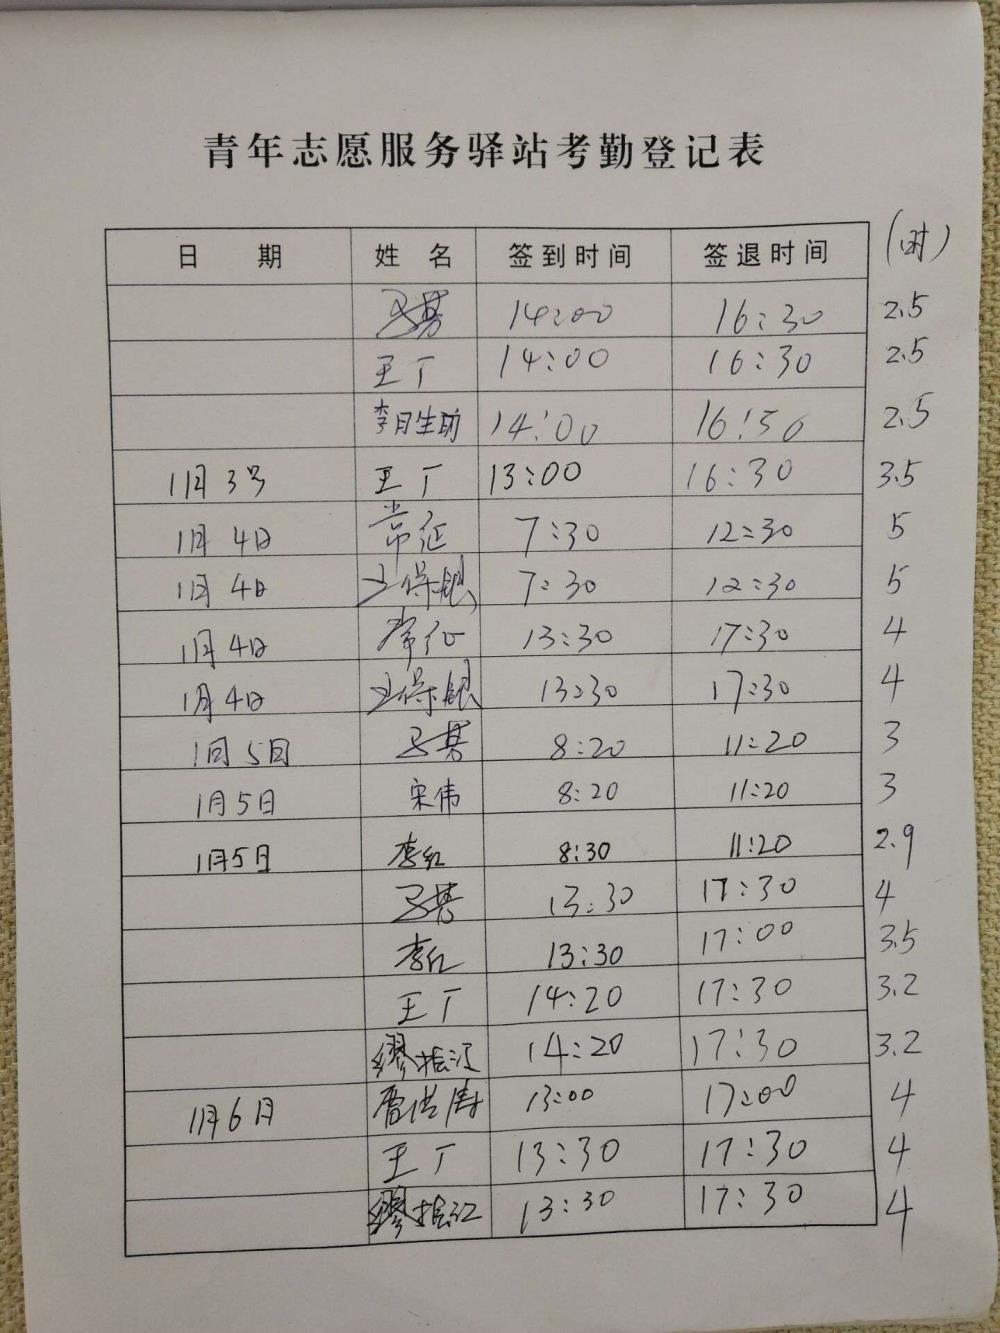 青年志愿服务驿站考勤登记表
日期 姓名 签到时间 签退时间 (时)
14:00 16:30 2.5
王丁 14:00 16:30 2.5
14:00 16:30 2.5
1月3号 王丁 13:00 16:30 3.5
1月4日 常征 7:30 12:30 5
1月4日 王保银 7:30 12:30 5
1月4日 常征 13:30 17:30 4
1月4日 王保银 13:30 17:30 4
1月5日 8:20 11:20 3
1月5日 宋伟 8:20 11:20 3
1月5日 李红 8:30 11:20 2.9
13:30 17:30 4
李红 13:30 17:00 3.5
王丁 14:20 17:30 3.2
缪振江 14:20 17:30 3.2
1月6日 13:00 17:00 4
王丁 13:30 17:30 4
缪振江 13:30 17:30 4